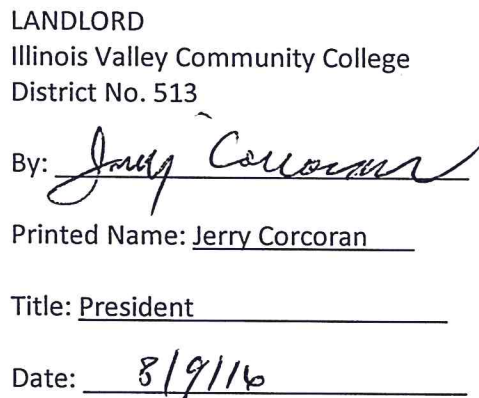 LANDLORD
Illinois Valley Community College
District No. 513
By: Jerry Corcoran
Printed Name: Jerry Corcoran
Title: President
Date: 8/9/16